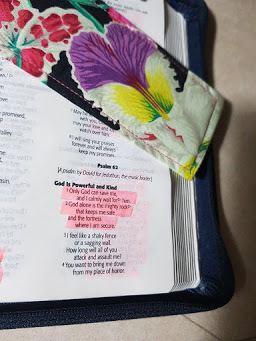 with you,
may your love and
watch over him.
I will sing your praises
forever and will always
keep my promises.
Psalm 62
[A psalm by David for Jeduthun, the music leader.]
God Is Powerful and Kind
1 Only God can save me,
and I calmly wait for him.
2 God alone is the mighty rock
that keeps me safe
and the fortress
where I am secure.
3 I feel like a shaky fence
or a sagging wall.
How long will all of you
attack and assault me?
4 You want to bring me down
from my place of honor.